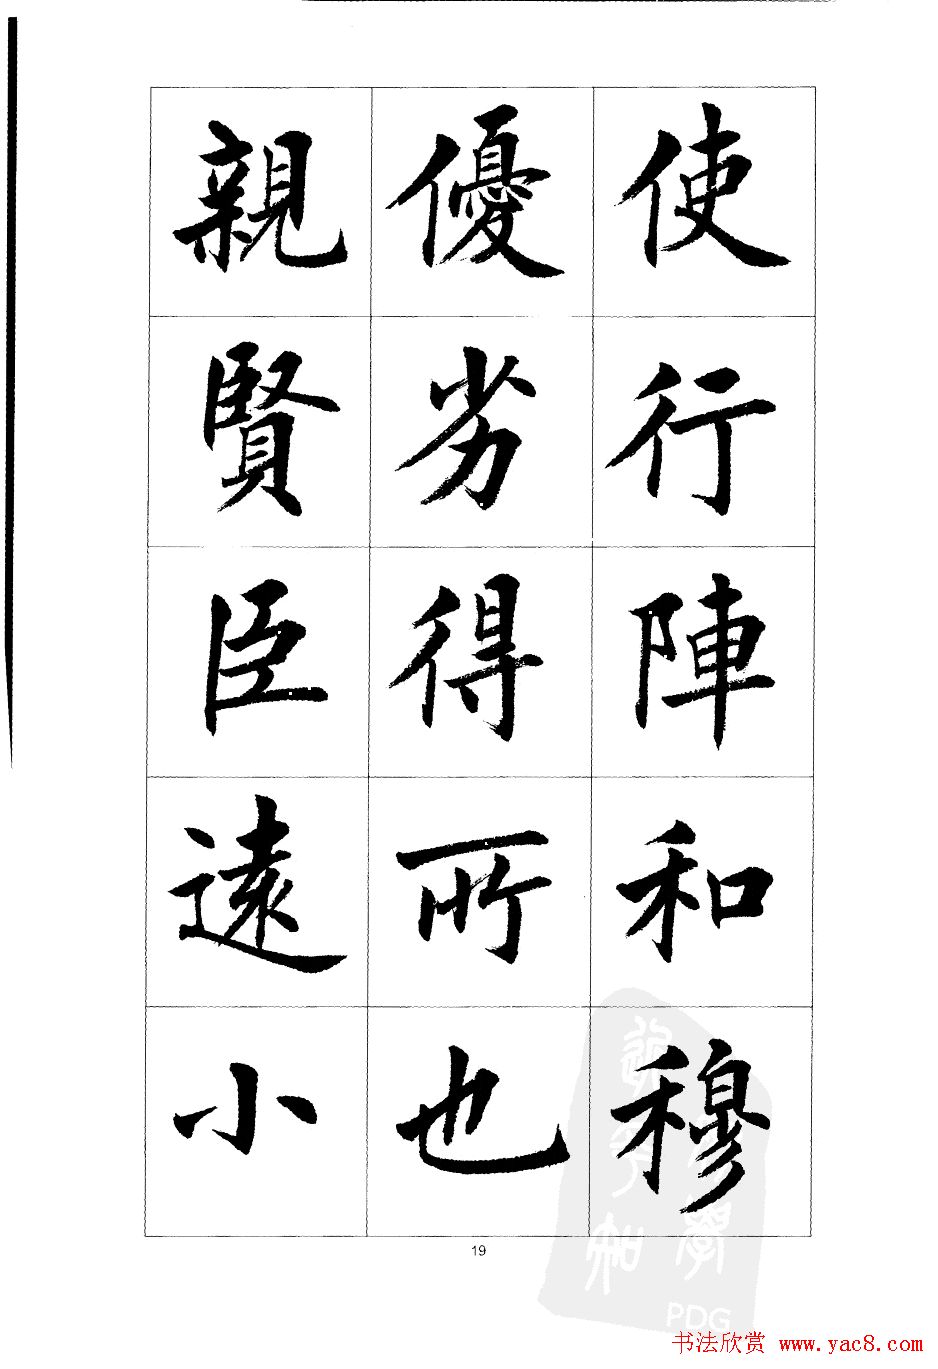 使行陣和穆
優劣得所也
親賢臣遠小
19
PDG
书法欣赏 www.yac8.com